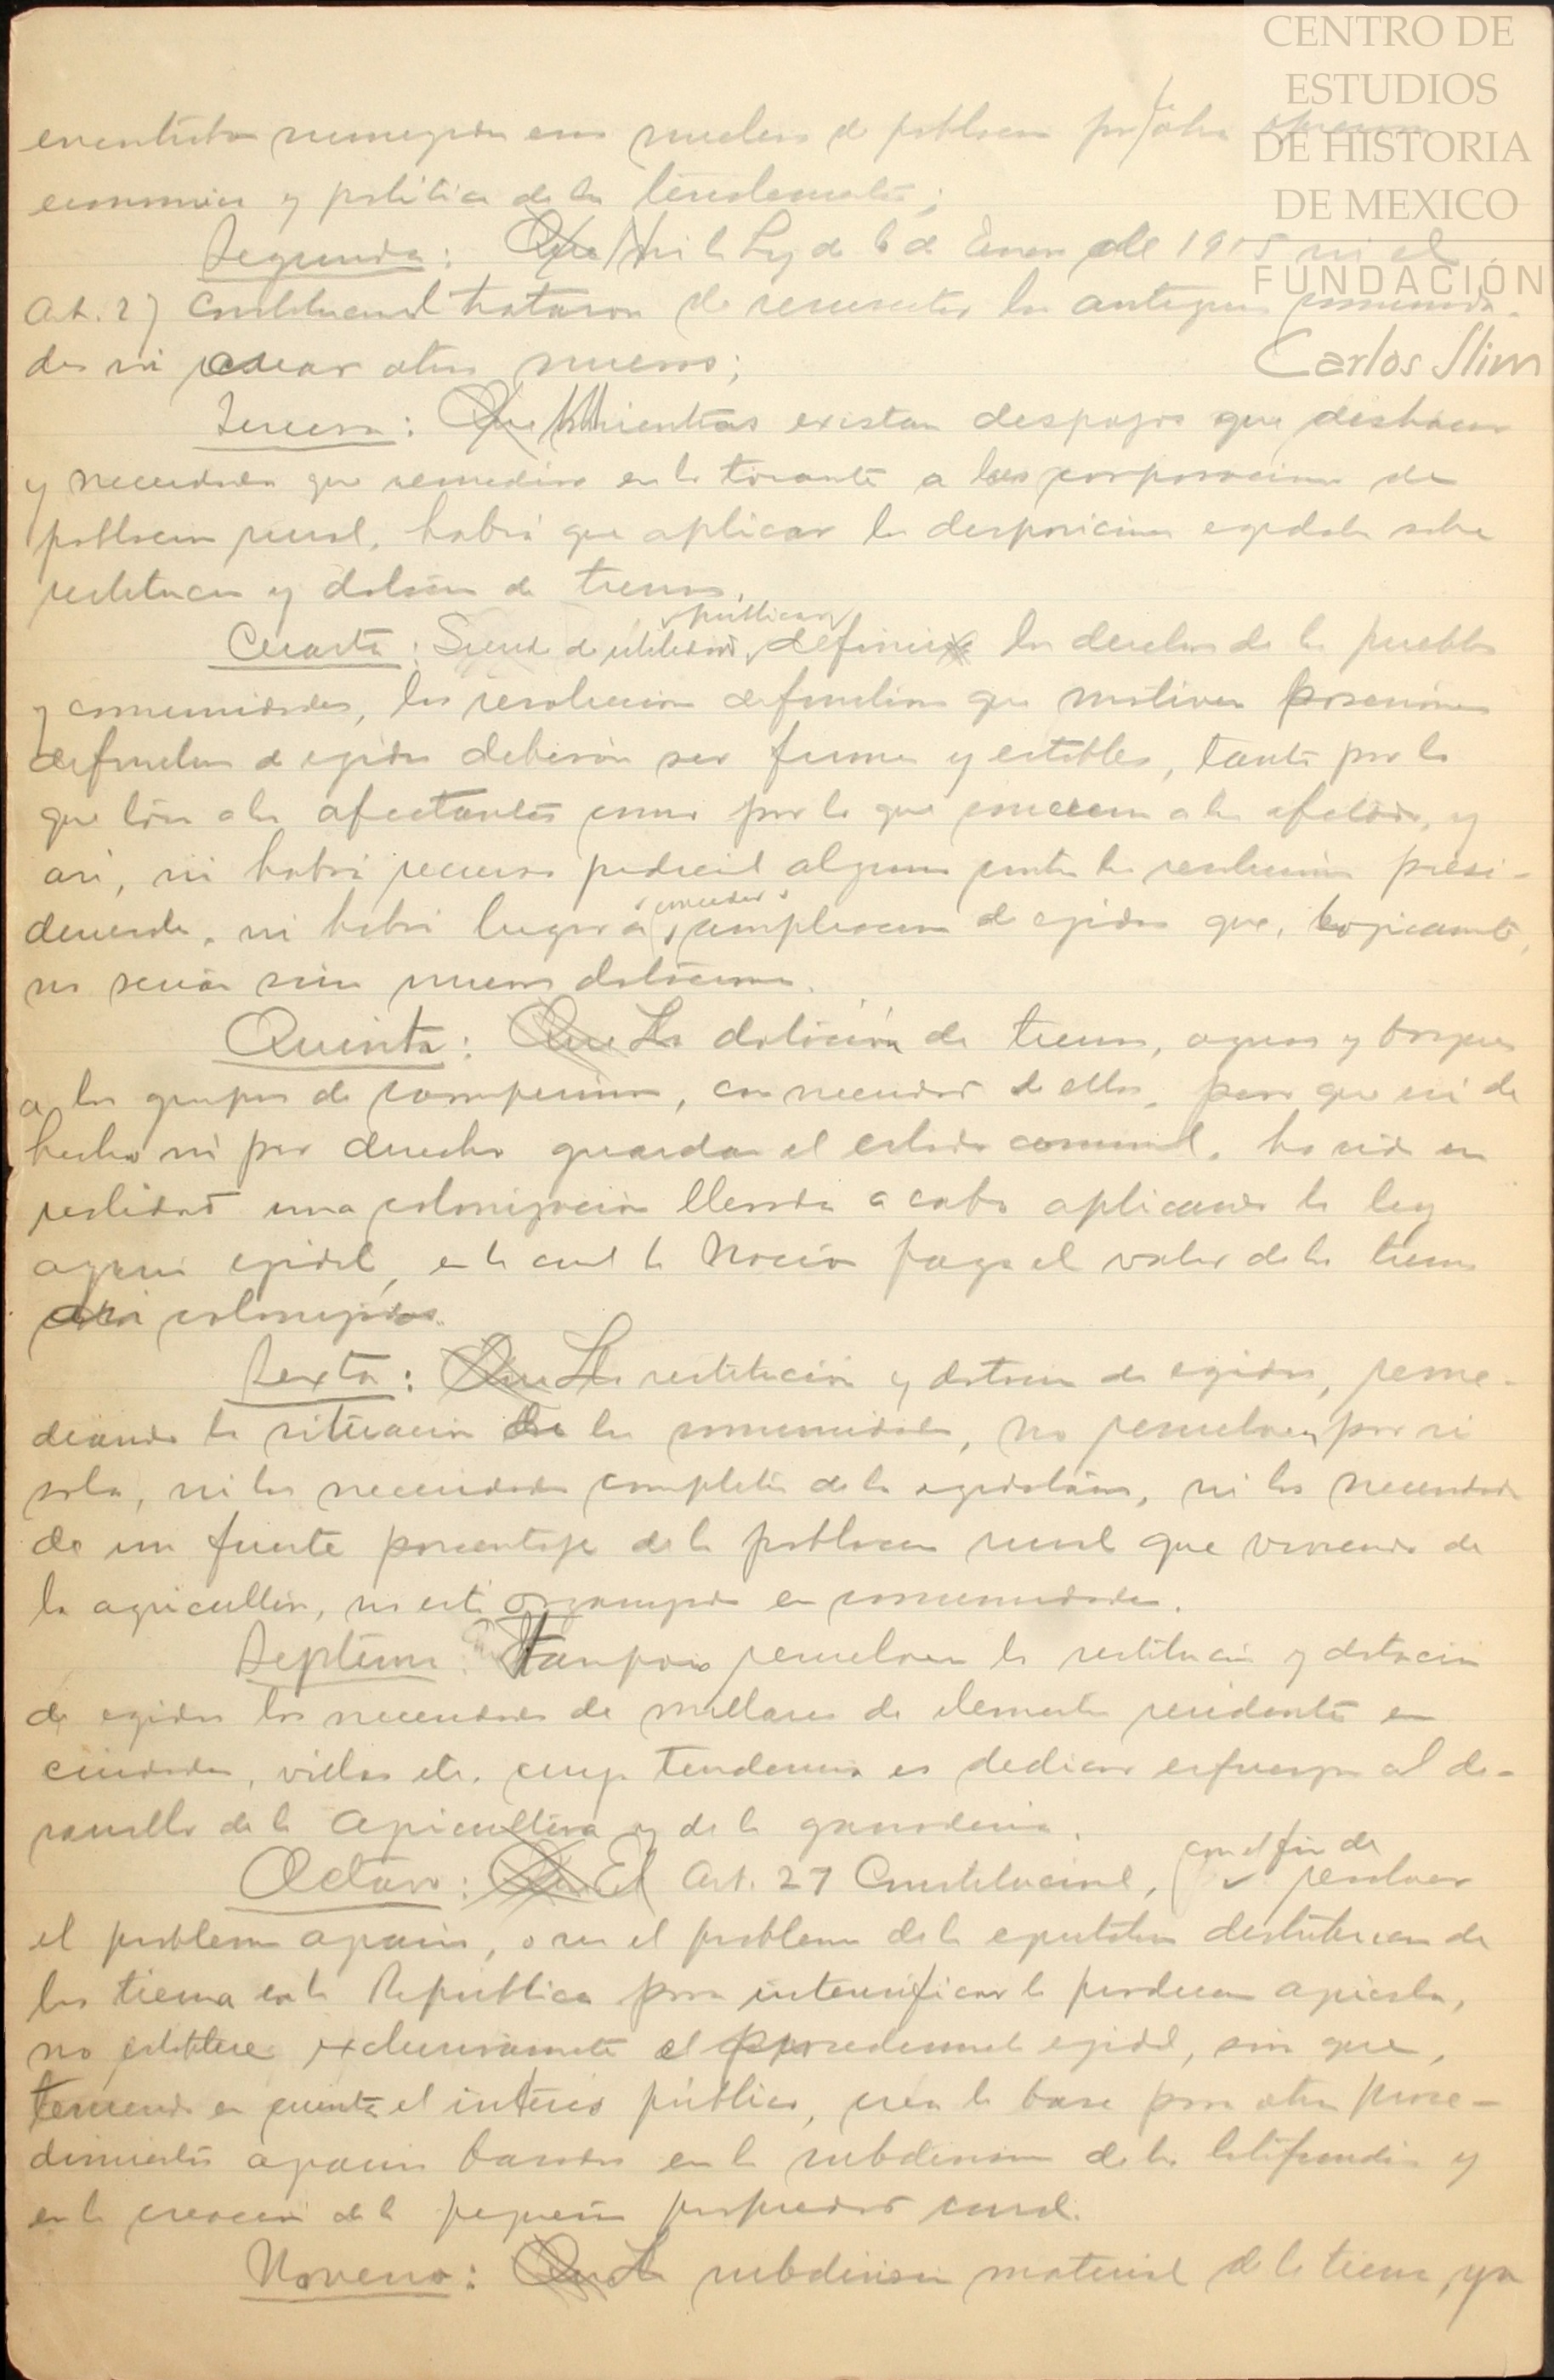 CENTRO DE
ESTUDIOS
DE HISTORIA
DE MEXICO
FUNDACIÓN
Carlos Slim
nucleos de poblacion por
economica y politica de los terratenientes;
Segunda: Que Ni la Ley de 6 de Enero del 1915 ni el
Art. 27 Constitucional trataron de resucitar las antiguas comunida-
des ni crear otras nuevas;
Tercera: Que Mientras existan despojos que deshacer
y necesidades que remediar en lo tocante a las corporaciones de
poblacion rural, habrá que aplicar las disposiciones egidales sobre
restitucion y dotacion de tierras.
publica
Cuarta: Siendo de utilidad definir los derechos de los pueblos
y comunidades, las resoluciones definitivas que motiven posesiones
definitivas de egidos deberán ser firmes y estables, tanto por lo
que toca a los afectantes como por lo que concierne a los afectados, y
asi, ni habrá recurso judicial alguno contra las resoluciones presi-
conceder
denciales, ni habrá lugar a ampliacion de egidos que, logicamente,
no serian sino nuevas dotaciones.
Quinta: Que La dotación de tierras, aguas y bosques
a los grupos de campesinos, con necesidad de ellos, pero que ni de
hecho ni por derecho guardan el estado comunal, ha sido en
realidad una colonización llevada a cabo aplicando la ley
agraria egidal, en la cual la Nacion paga el valor de las tierras
asi colonizadas.
Sexta: Que La restitución y dotacion de egidos, reme-
diando la situacion de las comunidades, no resuelven por si
solas, ni las necesidades completas de los egidatarios, ni las necesidades
de un fuerte porcentaje de la poblacion rural que viviendo de
la agricultura, no está organizada en comunidades.
Septima: Tampoco resuelven la restitucion y dotacion
de egidos las necesidades de millares de elementos residentes en
ciudades, villas etc. cuya tendencia es dedicar esfuerzos al de-
sarrollo de la agricultura y de la ganaderia.
con el fin de
Octavo: Que El Art. 27 Constitucional, resolver
el problema agrario, o sea el problema de la equitativa distribucion de
las tierras en la Republica para intensificar la produccion agricola,
no establece exclusivamente el procedimiento egidal, sino que,
teniendo en cuenta el interés público, crea la base para otros proce-
dimientos agrarios basados en la subdivision de los latifundios y
en la creacion de la pequeña propiedad rural.
Noveno: Que La subdivision material de la tierra, ya